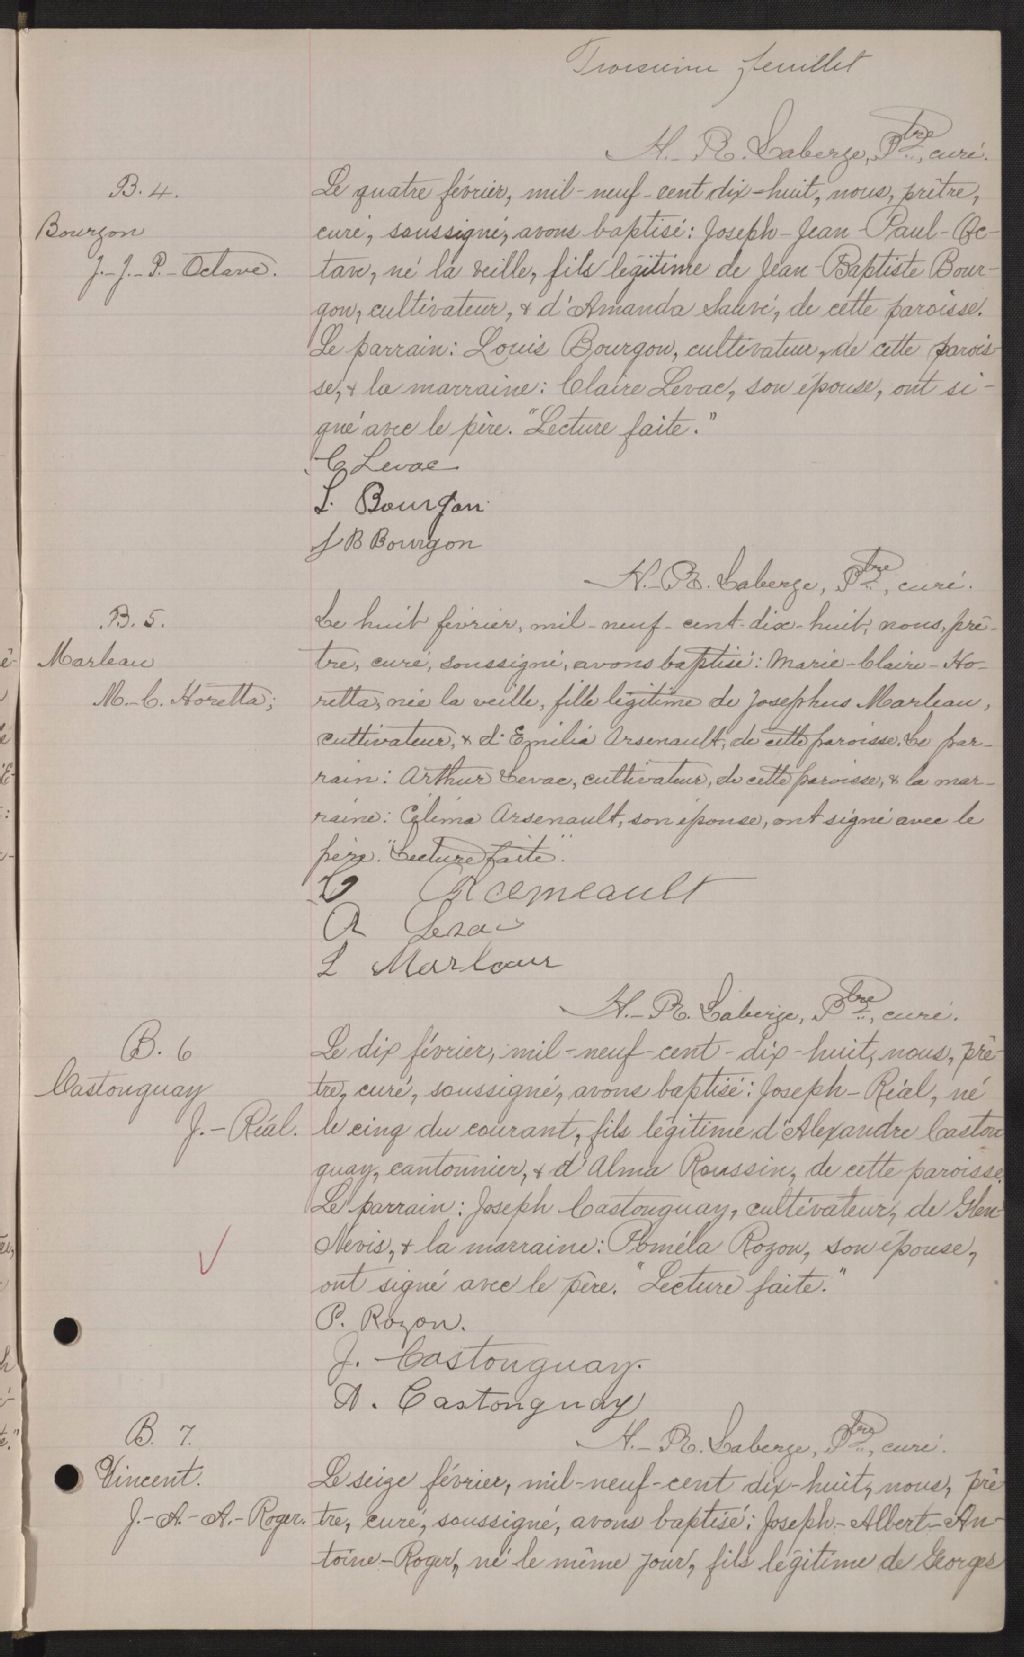 Troisième feuillet
H.-R. Laberge, Ptre, curé.
B. 4.
Bourgon
J.-J.-P.-Octave.
Le quatre février, mil-neuf-cent dix-huit, nous, prêtre,
curé, soussigné, avons baptisé: Joseph-Jean-Paul-Oc-
tave, né la veille, fils légitime de Jean-Baptiste Bour-
gon, cultivateur, & d'Amanda Sauvé, de cette paroisse.
Le parrain: Louis Bourgon, cultivateur, de cette parois-
se, & la marraine: Claire Levac, son épouse, ont si-
gné avec le père. "Lecture faite."
C Levac
L. Bourgon
J B Bourgon
H.-R. Laberge, Ptre, curé.
B. 5.
Marleau
M.-C. Horetta;
Le huit février, mil-neuf-cent-dix-huit, nous, prê-
tre, curé, soussigné, avons baptisé: Marie-Claire-Ho-
retta, née la veille, fille légitime de Josephus Marleau,
cultivateur, & d'Emilia Arsenault, de cette paroisse. Le par-
rain: Arthur Levac, cultivateur, de cette paroisse, & la mar-
raine: Célima Arsenault, son épouse, ont signé avec le
père. "Lecture faite".
A Levac
H.-R. Laberge, Ptre, curé.
B. 6
Castonguay
J.-Réal.
Le dix février, mil-neuf-cent-dix-huit, nous, prê-
tre, curé, soussigné, avons baptisé: Joseph-Réal, né
le cinq du courant, fils légitime d'Alexandre Caston
guay, cantonnier, & d'Alma Roussin, de cette paroisse.
Le parrain: Joseph Castonguay, cultivateur, de Glen
Nevis, & la marraine: Poméla Rozon, son épouse,
ont signé avec le père. "Lecture faite."
P. Rozon.
J. Castonguay.
A. Castonguay
H.-R. Laberge, Ptre, curé.
B. 7.
Vincent.
J.-A.-A.-Roger.
Le seize février, mil-neuf-cent dix-huit, nous, prê
tre, curé, soussigné, avons baptisé: Joseph-Albert-An-
toine-Roger, né le même jour, fils légitime de Georges